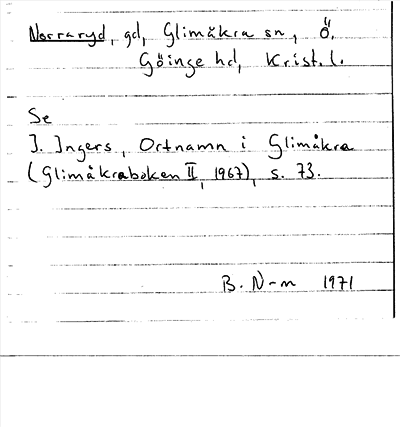 Norraryd, gd, Glimåkra sn, Ö.
Göinge hd, Krist. l.
Se
I. Ingers, Ortnamn i Glimåkra
(Glimåkraboken II, 1967), s. 73.
B. N-m 1971